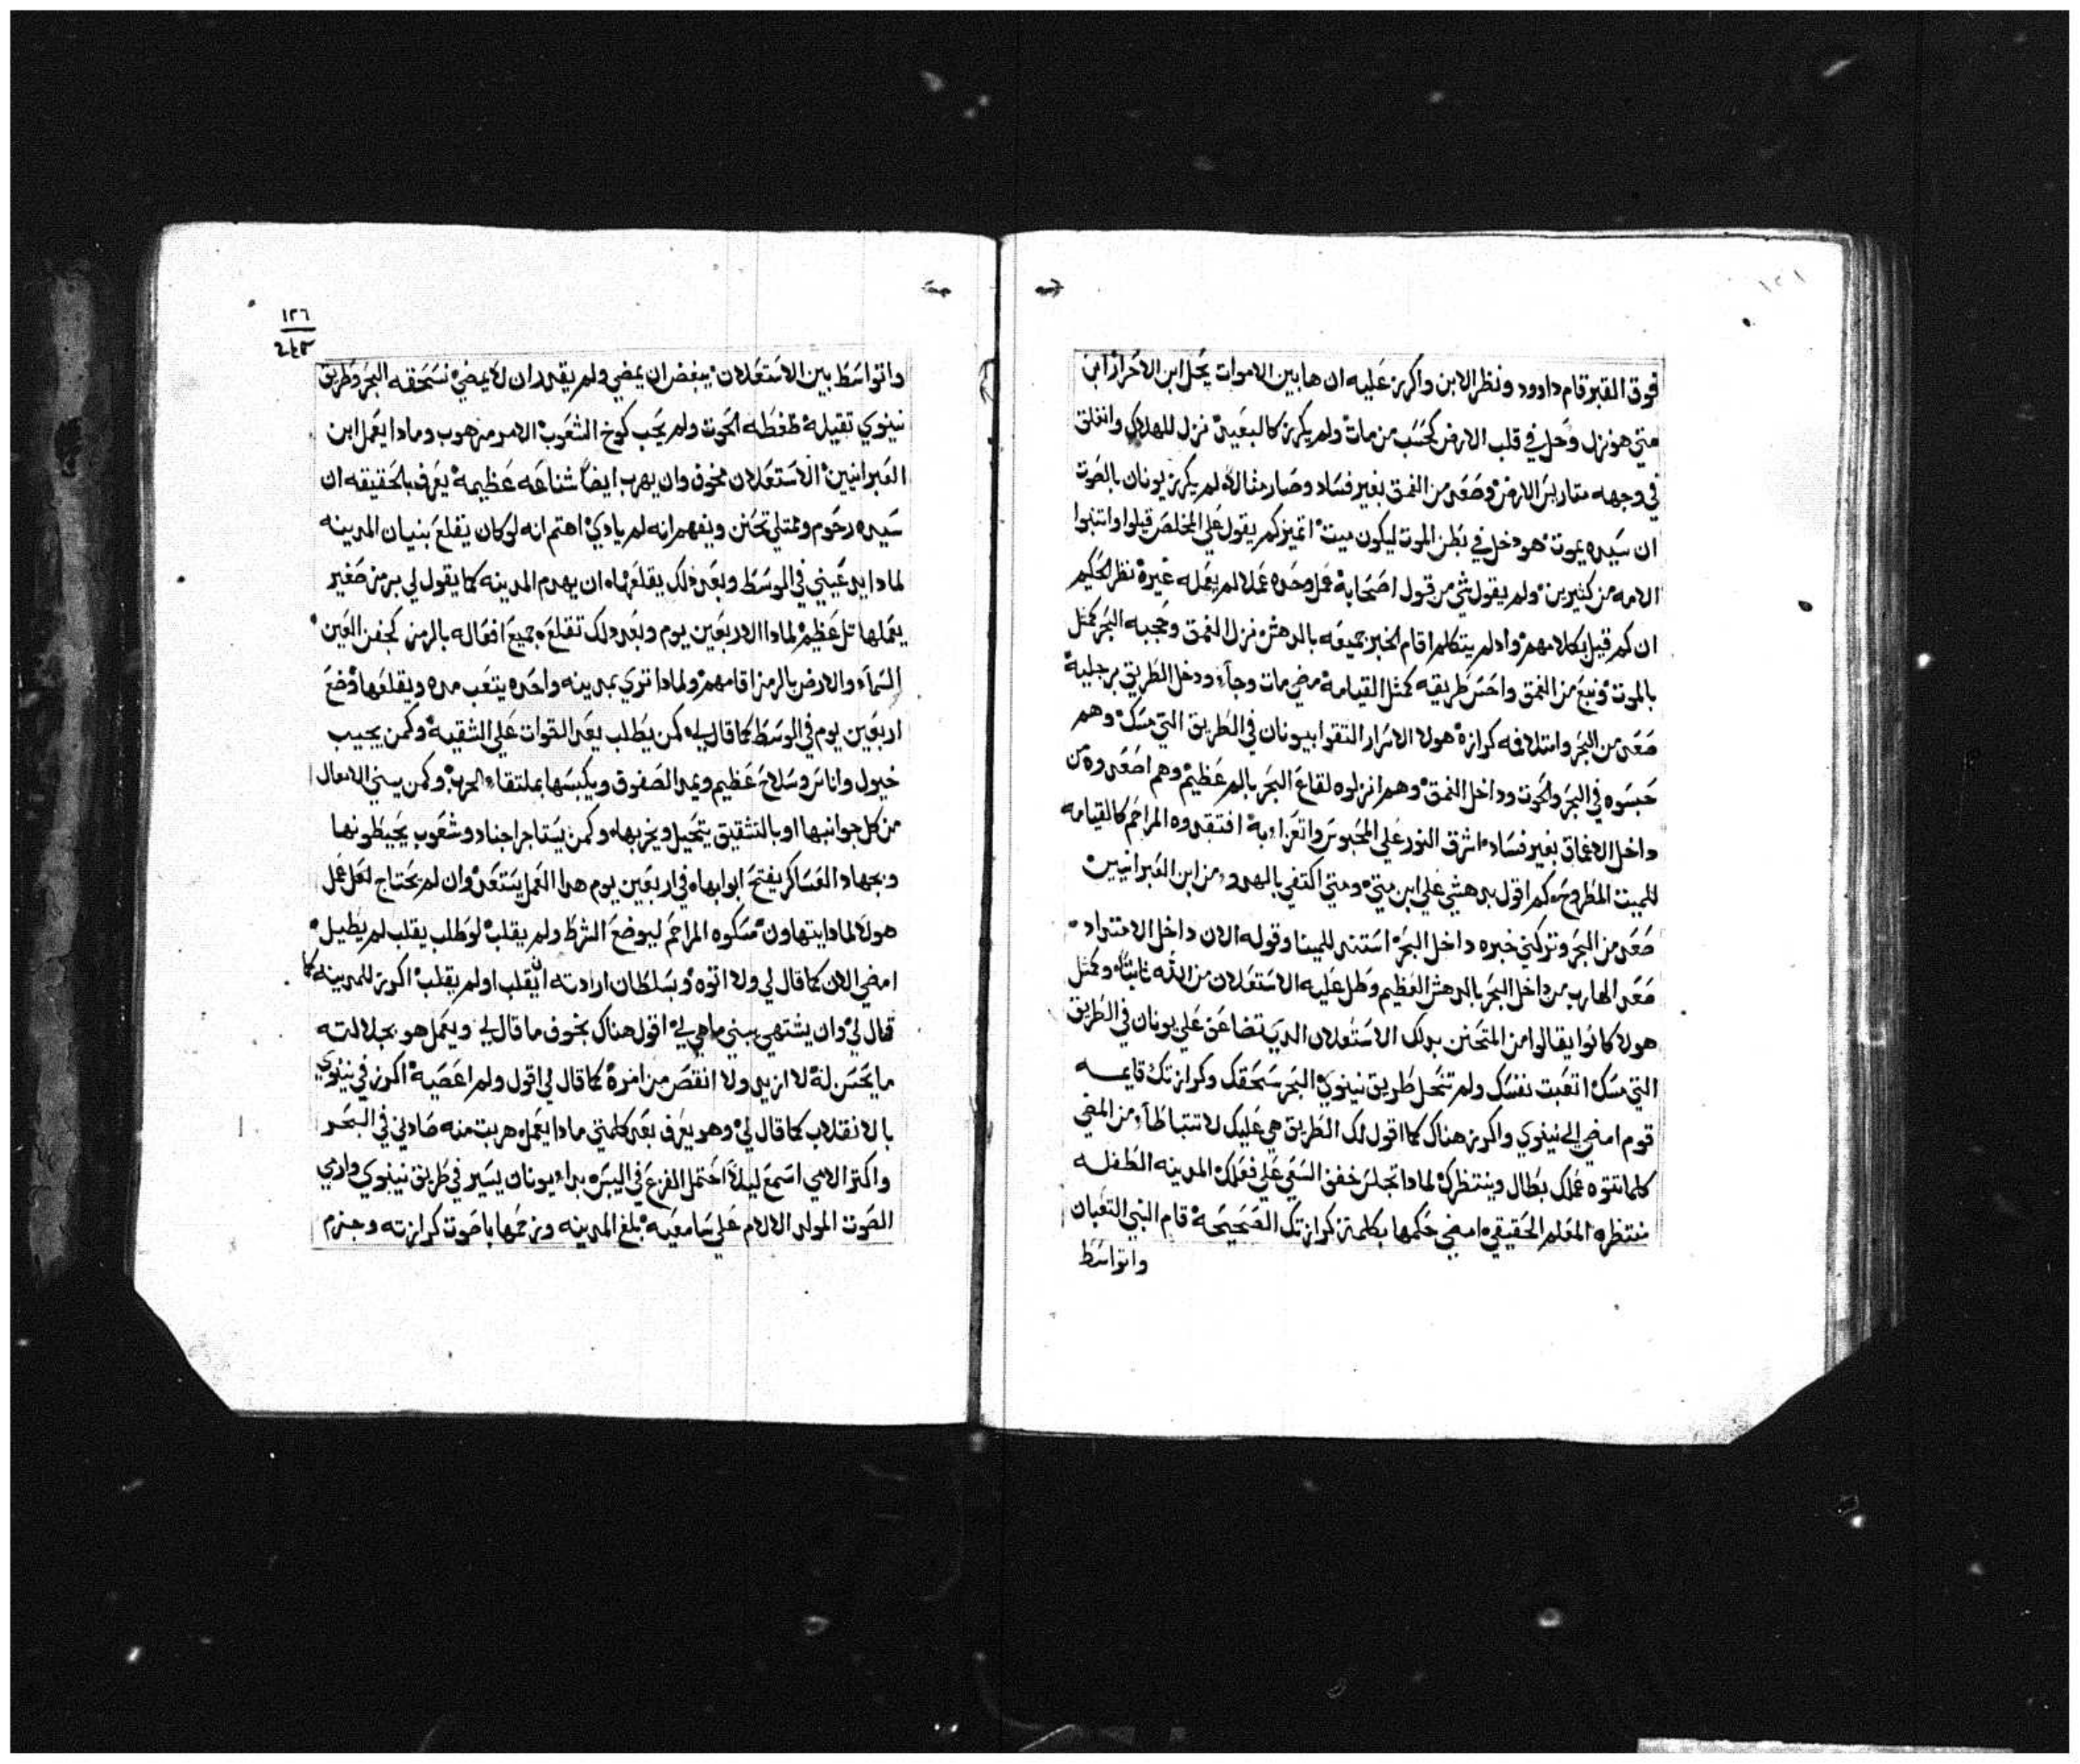 فوق القبر قام داوود ونظر الابن واكرز عليه ان ها بين الاموات يحل ابن الاحرار ابن
متي هو نزل وحل في قلب الارض كحسب من مات ولم يكرز كالبقيه نزل للهلاك وانغلق
في وجهه متاريس الارض وصعد من الغمق بغير فساد وصار مثالا لم يكرز يونان بالصوت
ان سيده يموت هو دخل في بطن الموت ليكون ميت اتميز كم يقول علي المخلص قيلوا وانتبوا
الامه من كثيرين ولم يقول شي من قول اصحابه عمل وحده عملا لم يعمله غيره نظر الحكيم
ان كم قيل بكلامهم واد لم يتكلم اقام الخبر جميعه بالدهش نزل الغمق وحجبه البحر كمثل
بالموت ونبع من الغمق واحسن طريقه كمثل القيامه مضي مات وجاء ودخل الطريق برجليه
صعد من البحر وابتلافه كرازه هولا الاسرار التقوا بيونان في الطريق التي مسك وهم
حبسوه في البحر والحوت وداخل الغمق وهم انزلوه لقاع البحر بالم عظيم وهم اصعدوه من
داخل الاعماق بغير فساد اشرق النور علي المحبوس واتعزا به افتقدوه المراحم كالقيامه
للميت المطروح كم اقول بدهشي علي ابن متي ومتي اكتفي بالهدو من ابن العبرانيين
صعد من البحر وتركني خبره داخل البحر استند للمينا وقوله الان داخل الامتداد
صعد الهارب من داخل البحر بالدهش العظيم وطل عليه الاستعلان من الله ثابتا وكمثل
هولا كانوا يقالوا من المتحنن بدلك الاستعلان الدي تضاعن علي يونان في الطريق
التي مسك اتعبت نفسك ولم تنحل طريق نينوي البحر سحقك وكرازتك قايمه
قوم امضي الي نينوي واكرز هناك كما اقول لك الطريق هي عليك لا تتباطأ من المضي
كلما تتوه عملك بطال وينتظرك لمادا تجلس خفف السعي علي فعلك المدينه الطفله
منتظره المعلم الحقيقي امضي حكمها بكلمة كرازتك الصحيحه قام النبي التعبان
واتواسط
١٢٦
واتواسط بين الاستعلان يبغض ان يمضي ولم يقدر ان لا يمضي نسحقه البحر وطريق
نينوي تقيله ضغطه الحوت ولم يجب كوخ الشعوب الامر مرهوب ومادا يعمل ابن
العبرانيين الاستعلان مخوف وان يهرب ايضا شناعه عظيمه يعرف بالحقيقه ان
سيده رحوم وممتلي تحنن ويفهم انه لم يادي اهتم انه لو كان يقلع بنيان المدينه
لمادا يدعيني في الوسط وبعد دلك يقلعها ان يهدم المدينه كما يقول لي برمز صغير
يعملها تل عظيم لمادا الاربعين يوم وبعد دلك تقلع جميع افعاله بالرمز كجفن العين
السماء والارض بالرمز اقامهم ولمادا تري بمدينه واحده يتعب مده ويقلعها وضع
اربعين يوم في الوسط كما قال لي كمن يطلب يعد القوات علي الشقيه وكمن يجيب
خيول واناس وسلاح عظيم ويمد الصفوق ويكبسها بملتقاء الحرب وكمن يسني الاعمال
من كل جوانبها او بالتشقيق يتحيل ويخربها وكمن يستاجر اجناد وشعوب يحيطونها
وبجهاد العساكر يفتح ابوابها في اربعين يوم هدا العمل يستعد وان لم يحتاج لعل عمل
هولا لمادا يتهاون مسكوه المراحم ليوضع الشرط ولم يقلب لو طلب يقلب لم يطيل
امضي الان كما قال لي ولا اتوه وبسلطان ارادته ان يقلب او لم يقلب اكرز للمدينه كما
قال لي وان يشتهي يبني ما هي لي اقول هناك بخوف ما قال لي ويعمل هو بجلالته
ما يحسن له لا ازيد ولا انقص من امره كما قال لي اقول ولم اعصيه اكرز في نينوي
بالانقلاب كما قال لي وهو يعرف بعد كلمتي مادا يعمل هربت منه صادني في البحر
واكتر الامي اسمع ليلا احتمل الفزع في اليبس بدا يونان يسير في طريق نينوي وادي
الصوت المولد الالام علي سامعيه بلغ المدينه وزحمها باصوت كرازته وجزم